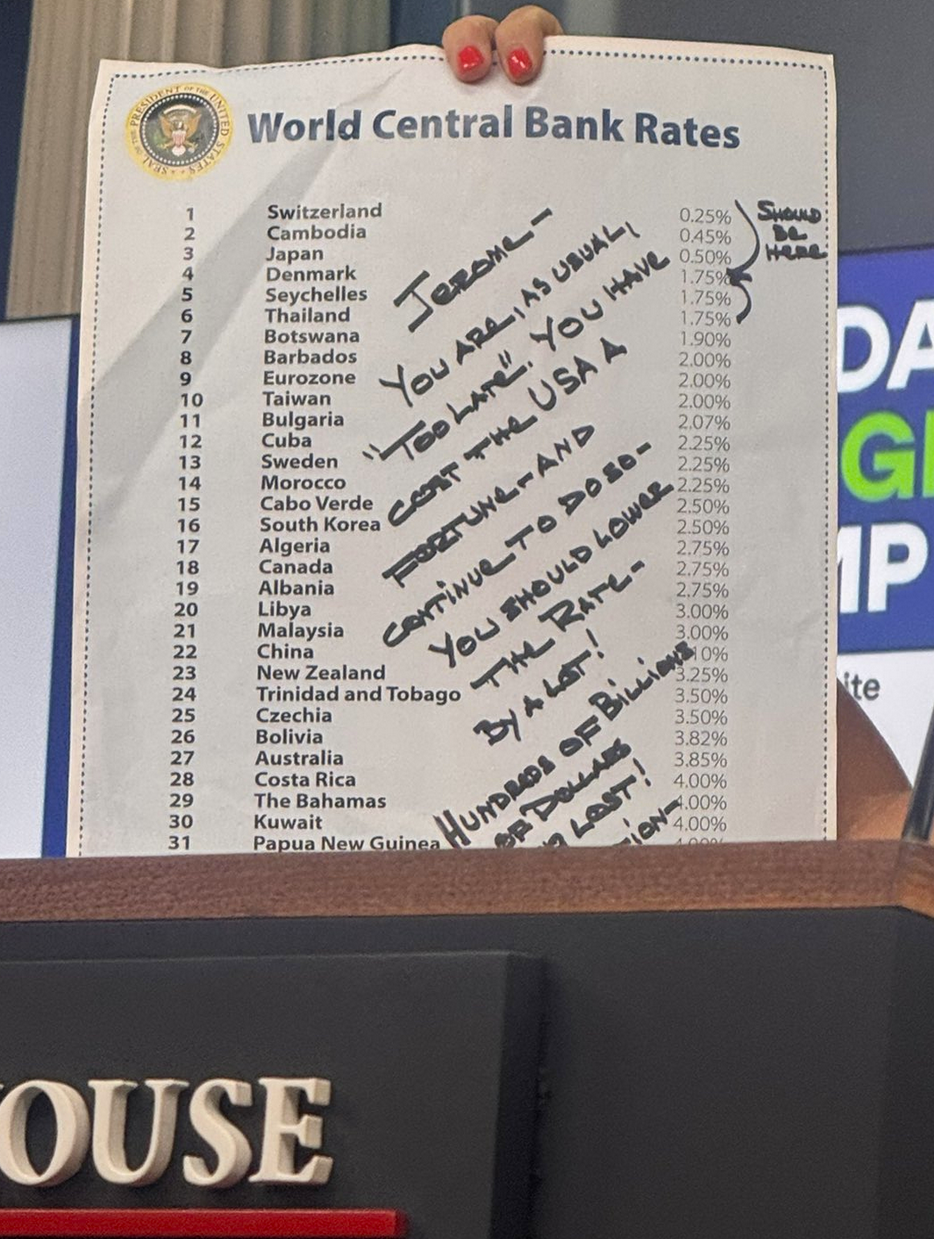 SEAL OF THE PRESIDENT OF THE UNITED STATES
World Central Bank Rates
1 Switzerland 0.25%
2 Cambodia 0.45%
3 Japan 0.50%
4 Denmark 1.75%
5 Seychelles 1.75%
6 Thailand 1.75%
7 Botswana 1.90%
8 Barbados 2.00%
9 Eurozone 2.00%
10 Taiwan 2.00%
11 Bulgaria 2.07%
12 Cuba 2.25%
13 Sweden 2.25%
14 Morocco 2.25%
15 Cabo Verde 2.50%
16 South Korea 2.50%
17 Algeria 2.75%
18 Canada 2.75%
19 Albania 2.75%
20 Libya 3.00%
21 Malaysia 3.00%
22 China 10%
23 New Zealand 3.25%
24 Trinidad and Tobago 3.50%
25 Czechia 3.50%
26 Bolivia 3.82%
27 Australia 3.85%
28 Costa Rica 4.00%
29 The Bahamas 4.00%
30 Kuwait 4.00%
31 Papua New Guinea
SHOULD
BE
HERE
JEROME—
YOU ARE, AS USUAL,
"TOO LATE". YOU HAVE
COST THE USA A
FORTUNE - AND
CONTINUE TO DO SO -
YOU SHOULD LOWER
THE RATE -
BY A LOT!
HUNDREDS OF BILLIONS
OF DOLLARS
LOST!
TION-
DA
GI
MP
ite
OUSE